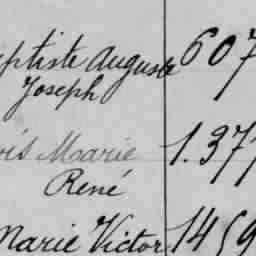 ptiste Auguste 607
Joseph
ois Marie 1.377
René
Marie Victor 1459